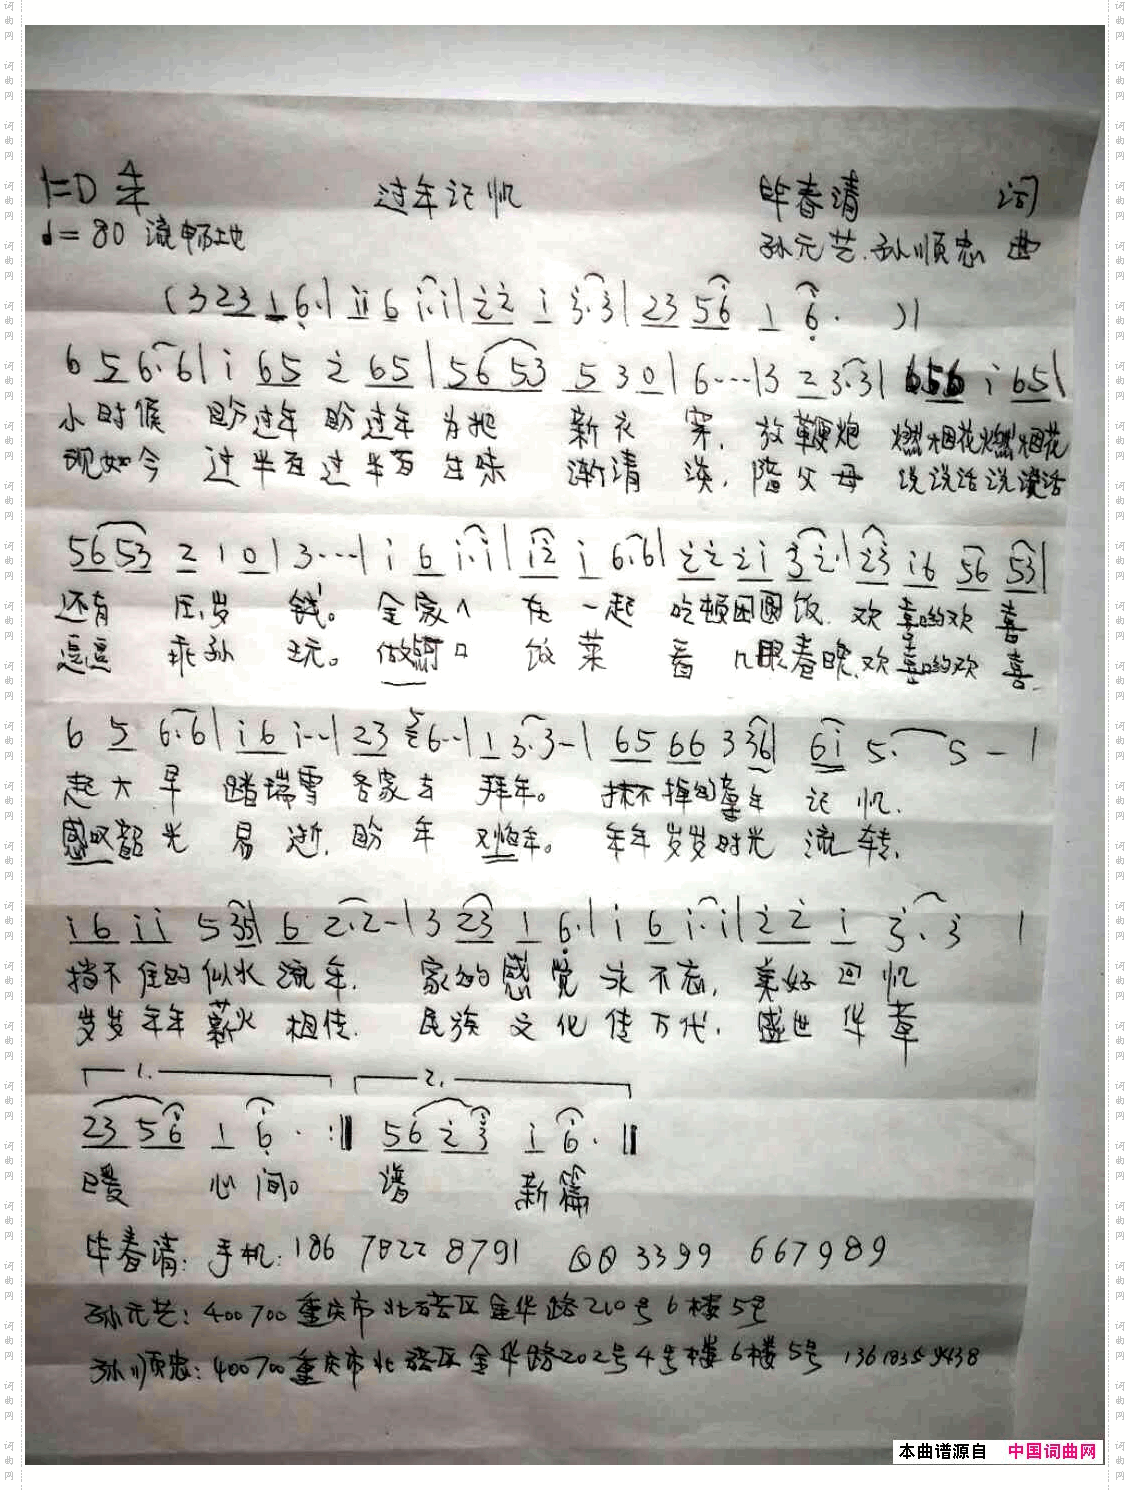 1=D 4/4 过年记忆 毕春清 词
♩=80 流畅地 孙元艺.孙顺忠 曲
(3 23 1 6·| ii 6 i·i| 22 i 3·3| 23 56 1 6· )|
6 5 6·6| i 65 2 65| 56 53 5 3 0| 6---|3 2 3·3| 656 i 65|
小时候 盼过年盼过年 为把 新衣 穿, 放鞭炮 燃烟花燃烟花
现如今 过半百过半百 生味 渐清 淡, 陪父母 说说话说说话
56 53 2 1 0| 3---| i 6 i·i| i2 i 6·6| 22 2i 32·| 23 i6 56 53|
还有 压岁 钱。 全家人 在一起 吃顿团圆饭. 欢喜哟欢喜
逗逗 乖孙 玩。 做可口 饭菜 看几眼春晚,欢喜哟欢喜.
6 5 6·6| i 6 i--| 23 6--| 1 3·3-| 65 66 3 36| 6i 5· 5 - |
起大早 踏瑞雪 各家去 拜年。 抹不掉的童年 记忆.
感叹韶光 易逝, 盼年 又怕年。 年年岁岁时光 流转,
i6 ii 5 35| 6 2·2-| 3 23 1 6·| i 6 i·i| 22 i 3·3 |
挡不住的似水流年, 家的感觉永不忘, 美好回忆
岁岁年年薪火相传. 民族文化传万代, 盛世华章
1. 2.
23 56 1 6· :|| 56 23 i 6· ||
暖 心间。 谱 新篇
毕春清: 手机: 186 7822 8791 QQ 3399 667989
孙元艺: 400700重庆市北碚区金华路210号6楼5号
孙顺忠: 400700重庆市北碚区金华路202号4号楼6楼5号
本曲谱源自 中国词曲网